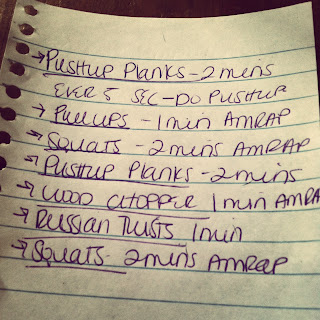 → PUSHUP PLANKS - 2 mins
EVER 5 SEC - DO PUSHUP
→ PULLUPS - 1 min AMRAP
→ SQUATS - 2 mins AMRAP
→ PUSHUP PLANKS - 2 mins
→ WOOD CHOPPER 1 min AMRA
→ RUSSIAN TWISTS 1 min
→ SQUATS - 2 mins AMRAP